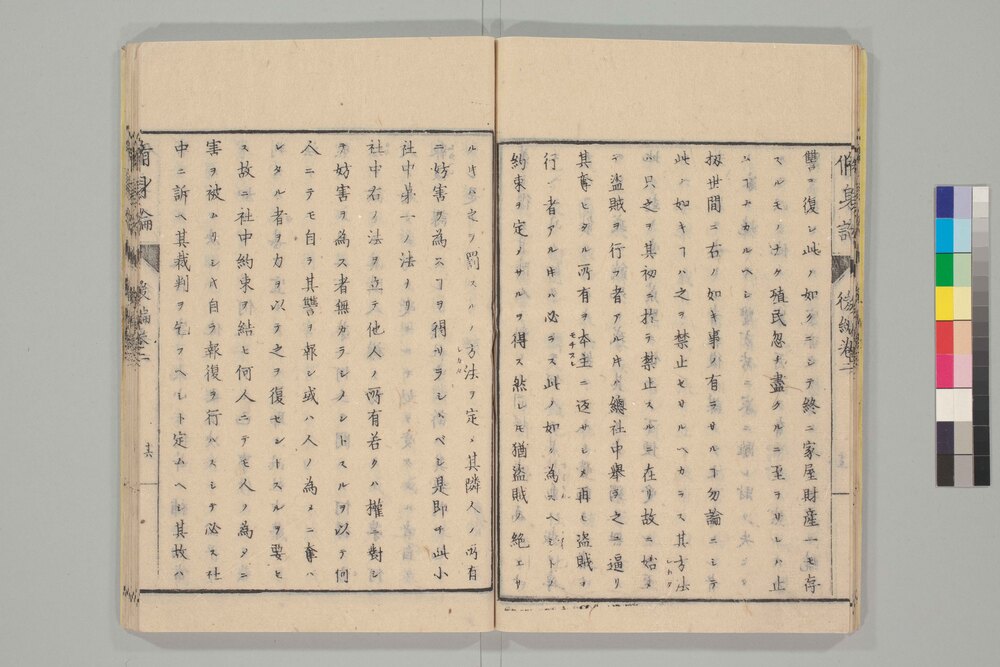 讐ヲ復シ此ノ如クニシテ終ニ家屋財産一モ存
スルモノナク殖民忽チ盡クルニ至ヲサレハ止
ナカルヘシ
扨世間ニ右ノ如キ事ノ有ラサルヿ勿論ニシテ
此ノ如キヿハ之ヲ禁止セサルヘカラス其方法
ハ只之ヲ其初ニ於テ禁止スルニ在リ故ニ始メ
テ盗賊ヲ行フ者アル片ハ總社中舉テ之ニ逼リ
其奪ヒタル所有ヲ本主ニ返サシメ再ヒ盗賊ヲ
行フ者アル片ハ必ラス此ノ如ク為スヘシトノ
約束ヲ定メサルヲ得ス然レモ猶盗賊ノ絶エサ
ル片ハ之ヲ罰スルノ方法ヲ定メ其隣人ノ所有
ニ妨害ヲ為スヿヲ得サラシムベシ是即チ此小
社中第一ノ法ナリ
社中右ノ法ヲ立テ他人ノ所有若クハ權ニ對シ
テ妨害ヲ為ス者無カラシメントスルヲ以テ何
人ニテモ自ラ其讐ヲ報シ或ハ人ノ為メニ奪ハ
レタル者ヲ力ヲ以テ之ヲ復センドスルヲ要セ
ス故ニ社中約束ヲ結ヒ何人ニテモ人ノ為メニ
害ヲ被ムタルキ自ラ報復ヲ行ハスシテ必ス社
中ニ訴ヘ其裁判ヲ乞フヘシト定ムヘシ其故ハ
脩身論
後編卷二